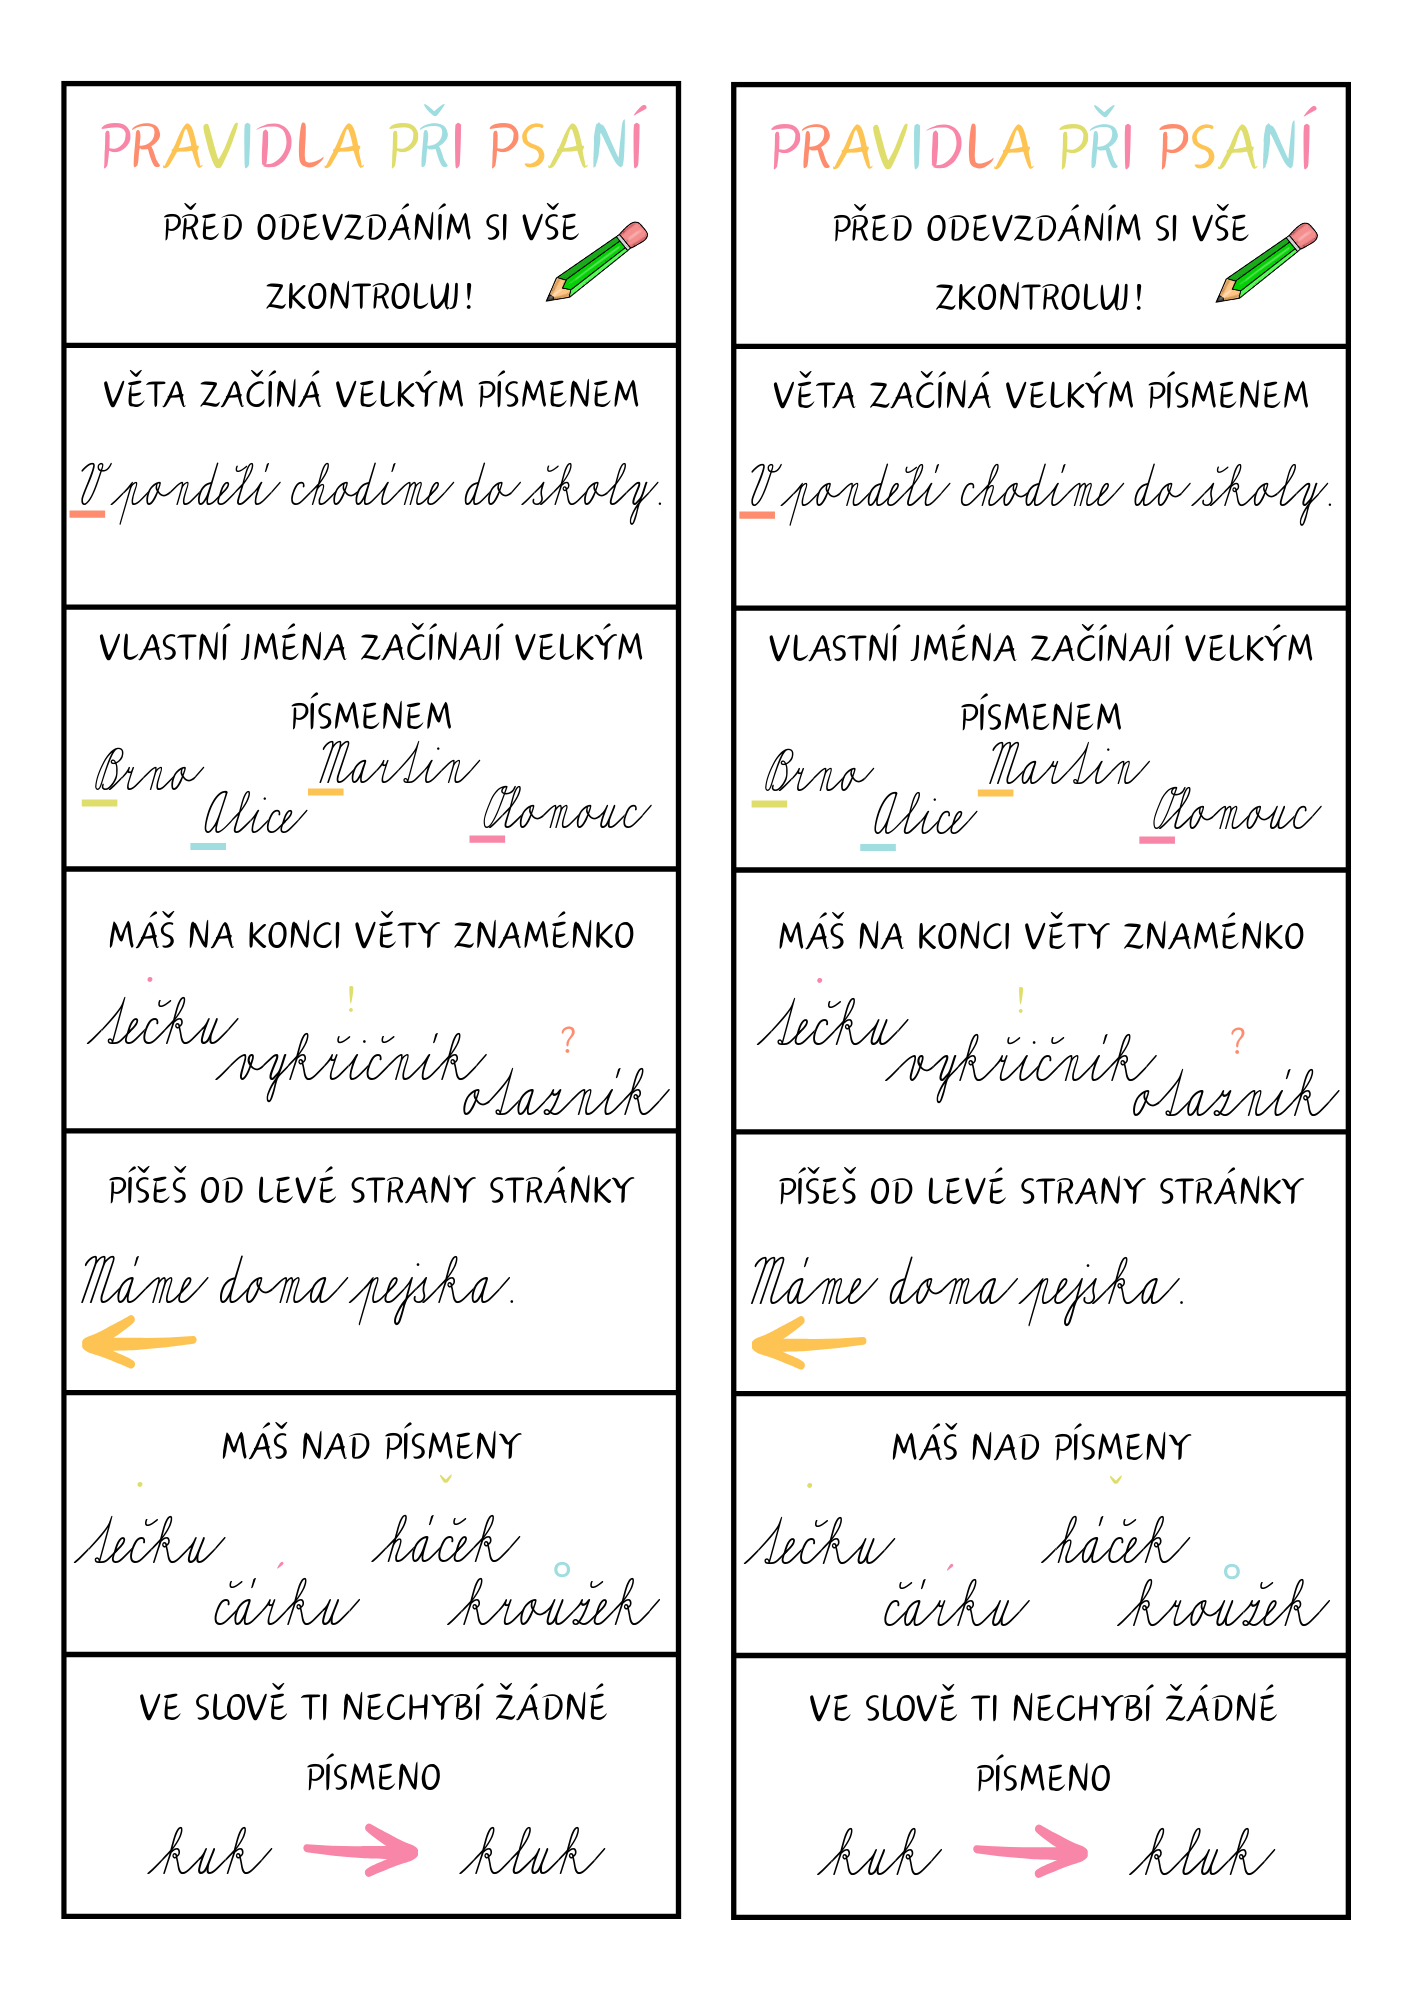 PRAVIDLA PŘI PSANÍ
PŘED ODEVZDÁNÍM SI VŠE
ZKONTROLUJ!
VĚTA ZAČÍNÁ VELKÝM PÍSMENEM
V pondělí chodíme do školy.
VLASTNÍ JMÉNA ZAČÍNAJÍ VELKÝM
PÍSMENEM
Brno
Martin
Alice
Olomouc
MÁŠ NA KONCI VĚTY ZNAMÉNKO
.
!
?
tečku
vykřičník
otazník
PÍŠEŠ OD LEVÉ STRANY STRÁNKY
Máme doma pejska.
MÁŠ NAD PÍSMENY
tečku
háček
čárku
kroužek
VE SLOVĚ TI NECHYBÍ ŽÁDNÉ
PÍSMENO
kuk
kluk
PRAVIDLA PŘI PSANÍ
PŘED ODEVZDÁNÍM SI VŠE
ZKONTROLUJ!
VĚTA ZAČÍNÁ VELKÝM PÍSMENEM
V pondělí chodíme do školy.
VLASTNÍ JMÉNA ZAČÍNAJÍ VELKÝM
PÍSMENEM
Brno
Martin
Alice
Olomouc
MÁŠ NA KONCI VĚTY ZNAMÉNKO
.
!
?
tečku
vykřičník
otazník
PÍŠEŠ OD LEVÉ STRANY STRÁNKY
Máme doma pejska.
MÁŠ NAD PÍSMENY
tečku
háček
čárku
kroužek
VE SLOVĚ TI NECHYBÍ ŽÁDNÉ
PÍSMENO
kuk
kluk